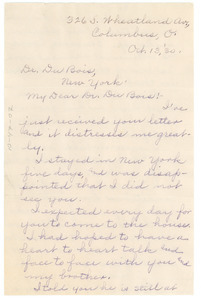 326 S. Wheatland Av,
Columbus, O.
Oct 13, '20.
Dr. Du Bois,
New York
My Dear Dr. Du Bois:
I've
just received your letter
and it distresses me great-
ly.
I stayed in New York
five days, & was disap-
pointed that I did not
see you.
I expected every day for
you to come to the house.
I had hoped to have a
heart to heart talk and
face to face with you &
my brother.
I told you he is still at